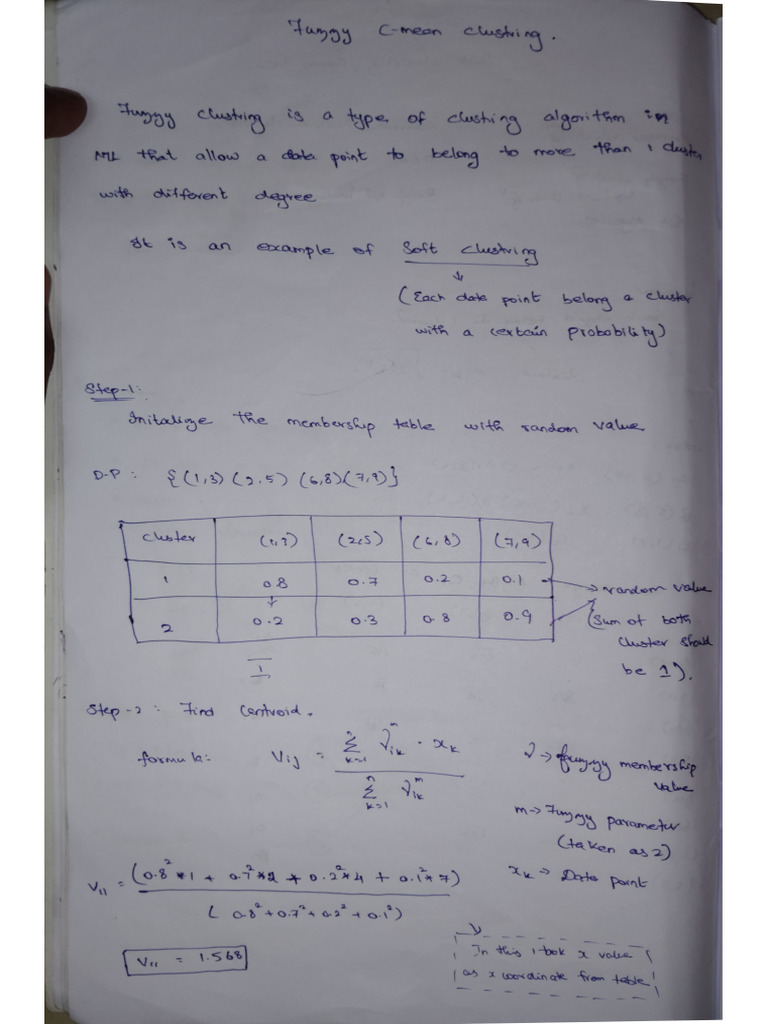 Fuzzy C-mean clustring.
Fuzzy clustring is a type of clustring algorithm in
ML that allow a data point to belong to more than 1 cluster
with different degree
It is an example of Soft clustring
↓
(Each date point belong a cluster
with a certain probobility)
Step-1:
Initalize the membership table with random value
D-P : {(1,3) (2,5) (6,8) (7,9)}
cluster (1,3) (2,5) (6,8) (7,9)
1 0.8 0.7 0.2 0.1 → random value
2 0.2 0.3 0.8 0.9 (Sum of both
cluster should
1 be 1).
Step-2 : Find Centroid.
formula: Vij = Σ(k=1 to n) γik^m · xk / Σ(k=1 to n) γik^m
γ → fuzzy membership
value
m → Fuzzy parameter
(taken as 2)
xk → Data point
V11 = (0.8²*1 + 0.7²*2 + 0.2²*4 + 0.1²*7)
(0.8²+0.7²+0.2²+0.1²)
V11 = 1.568
In this I took x value
as x coordinate from table